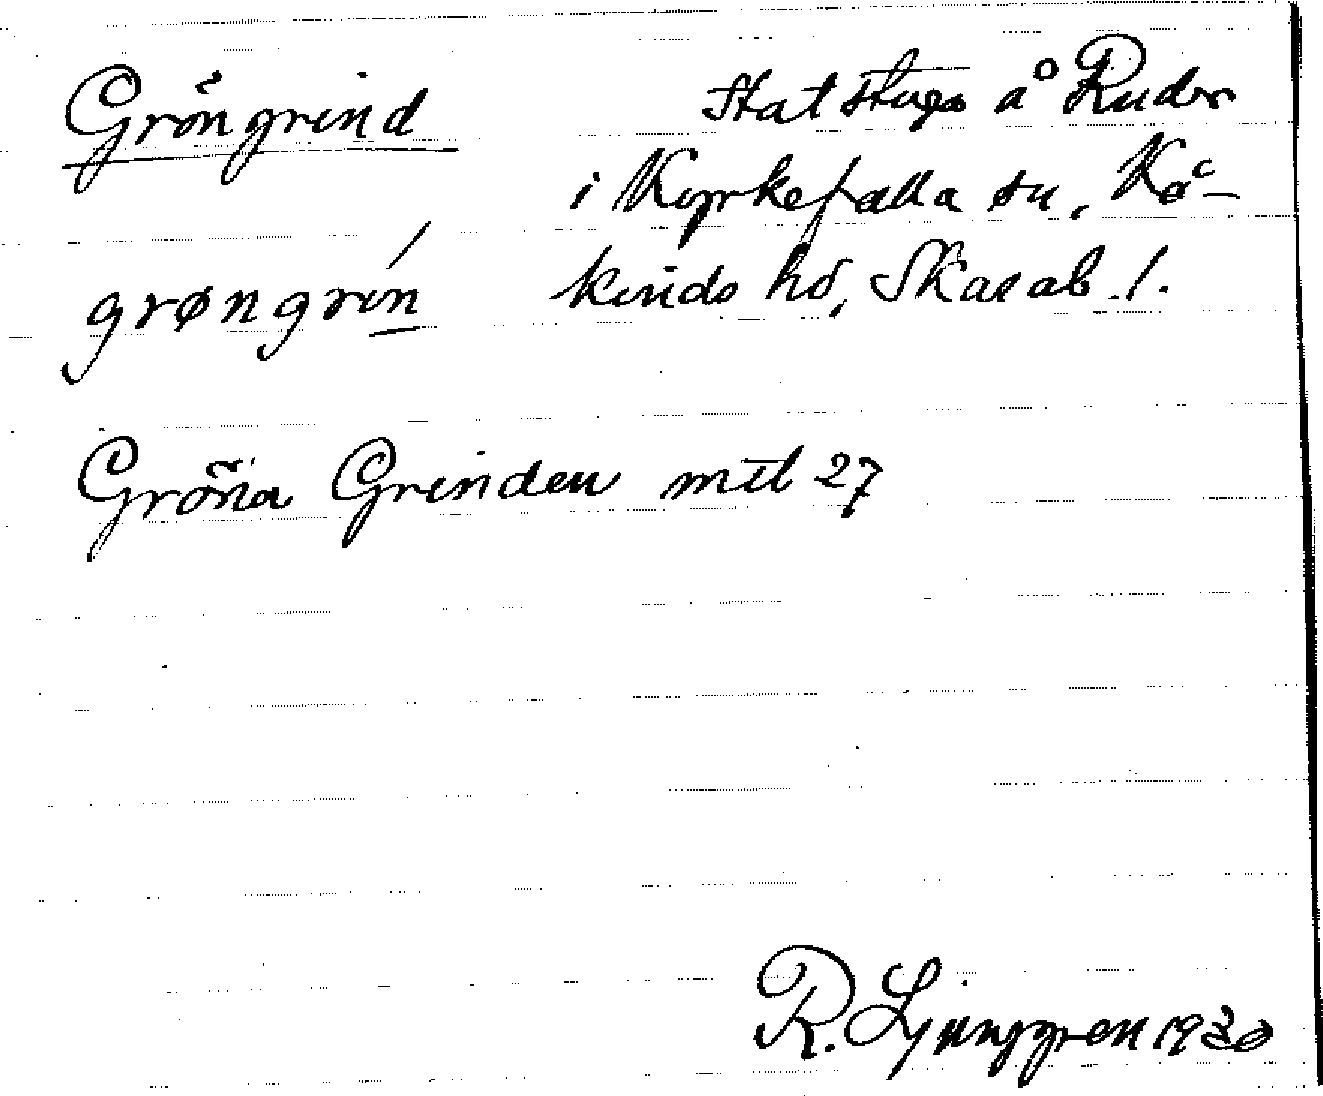 Gröngrind
Statstuga å Ruder
i Kyrkefalla sn, Kå-
kinds hd, Skarab. l.
grøngrin
Gröna Grinden mtl 27
R. Ljunggren 1930